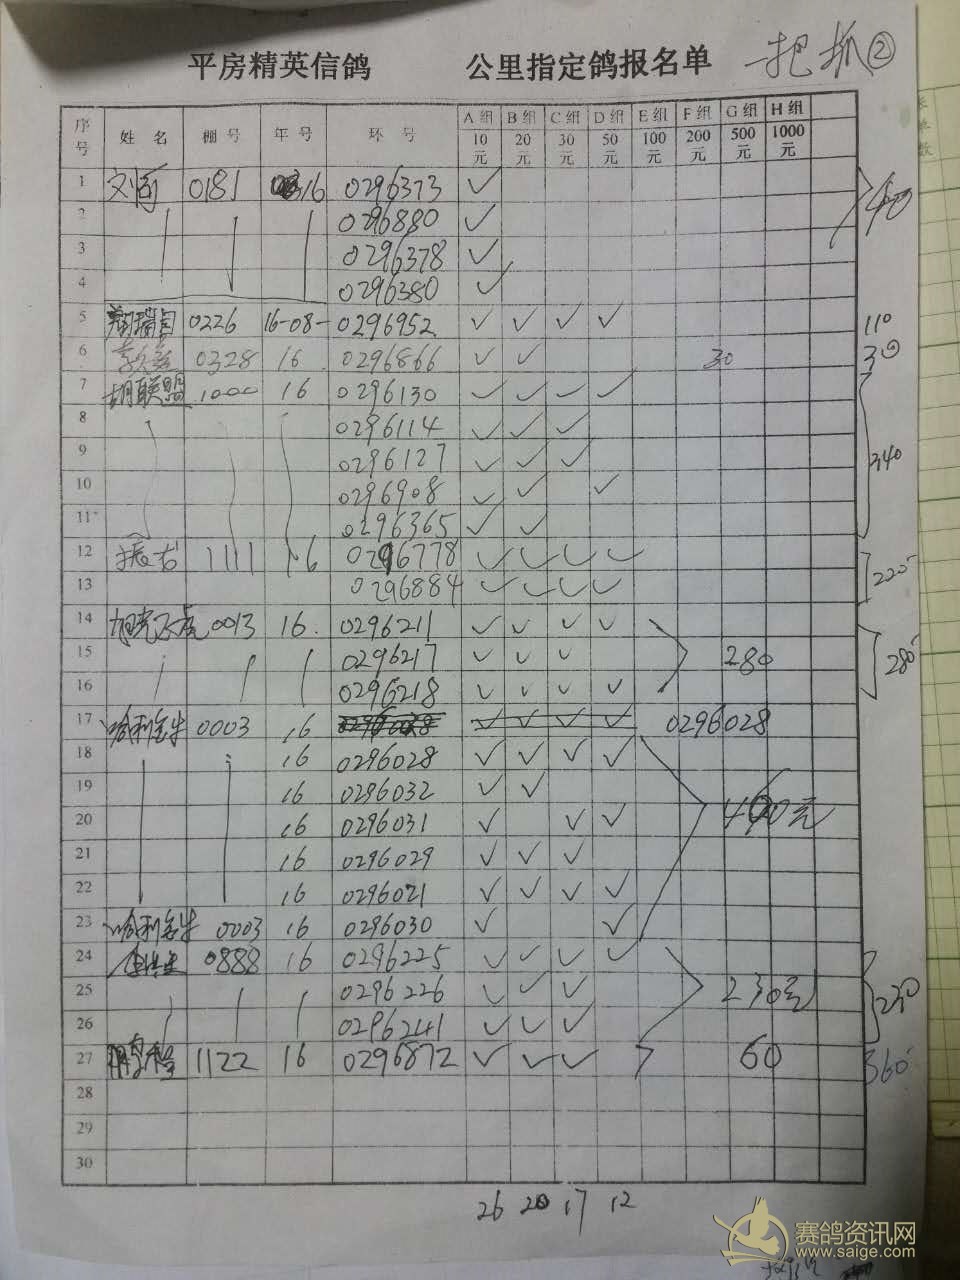 平房精英信鸽 公里指定鸽报名单 一把抓②
序号 姓名 棚号 年号 环号 A组 B组 C组 D组 E组 F组 G组 H组
10元 20元 30元 50元 100元 200元 500元 1000元
1 0181 16 0296373 ✓ 40
2 0296880 ✓
3 0296378 ✓
4 0296380 ✓
5 0226 16-08- 0296952 ✓ ✓ ✓ ✓ 110
6 0328 16 0296866 ✓ ✓ 30 30
7 胡联盟 1000 16 0296130 ✓ ✓ ✓ ✓
8 0296114 ✓ ✓ ✓
9 0296127 ✓ ✓ ✓ 340
10 0296908 ✓ ✓ ✓
11 0296365 ✓ ✓
12 1111 16 0296778 ✓ ✓ ✓ ✓ 220
13 0296884 ✓ ✓ ✓ ✓
14 0013 16 0296211 ✓ ✓ ✓ ✓
15 0296217 ✓ ✓ ✓ 280 280
16 0296218 ✓ ✓ ✓ ✓
17 哈利金牛 0003 16 0296028 ✓ ✓ ✓ ✓ 0296028
18 16 0296028 ✓ ✓ ✓ ✓
19 16 0296032 ✓ ✓
20 16 0296031 ✓ ✓ ✓ 490元
21 16 0296029 ✓ ✓ ✓
22 16 0296021 ✓ ✓ ✓ ✓
23 哈利金牛 0003 16 0296030 ✓ ✓
24 0888 16 0296225 ✓ ✓ ✓ ✓
25 0296226 ✓ ✓ ✓ 230元 230
26 0296241 ✓ ✓ ✓
27 1122 16 0296872 ✓ ✓ ✓ 60 360
28
29
30
26 20 17 12
赛鸽资讯网
www.saige.com